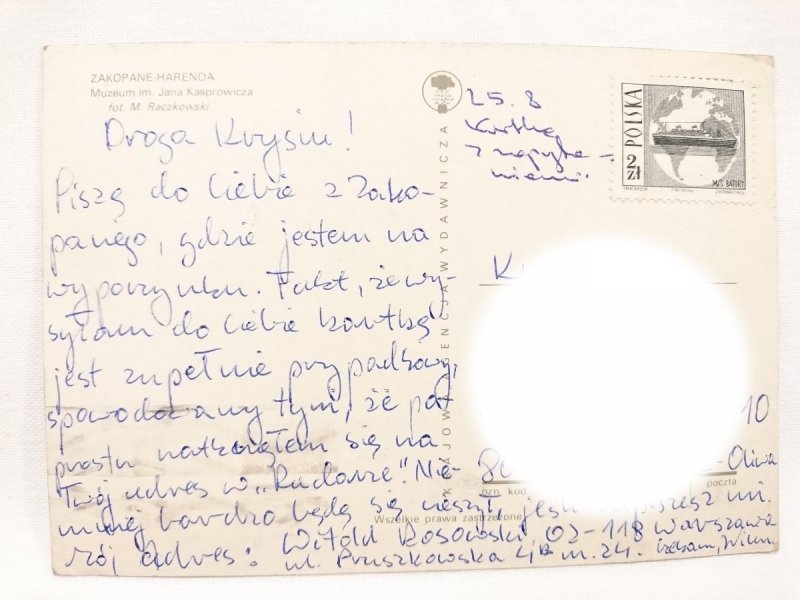 ZAKOPANE-HARENDA
Muzeum im. Jana Kasprowicza
fot. M. Raczkowski
Droga Krysiu!
Piszę do Ciebie z Zako-
panego, gdzie jestem na
wypoczynku. Fakt, że wy-
syłam do Ciebie kartkę
jest zupełnie przypadkowy,
spowodowany tym, że po
prostu natknąłem się na
Twój adres w „Radarze". Nie-
mniej bardzo będę się cieszył, jeśli napiszesz mi.
Mój Adres: Witold Kosowski, 02-118 Warszawa
ul. Pruszkowska 4B m. 24. Czekam, Witek
KRAJOWA AGENCJA WYDAWNICZA
25.8
Kartka
POLSKA
2 zł
M/S BATORY
K
10
80
-Oliwa
ozn. kod
poczta
Wszelkie prawa zastrzeżone